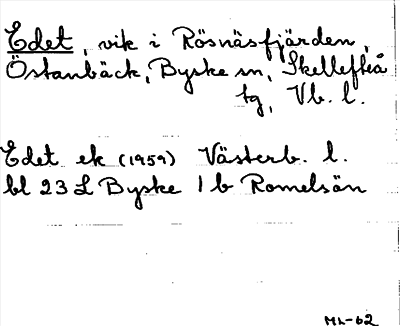 Edet, vik i Rösnäsfjärden,
Östanbäck, Byske sn, Skellefteå
tg, Vb. l.
Edet ek (1959) Västerb. l.
bl 23 L Byske 1 b Romelsön
ML-62